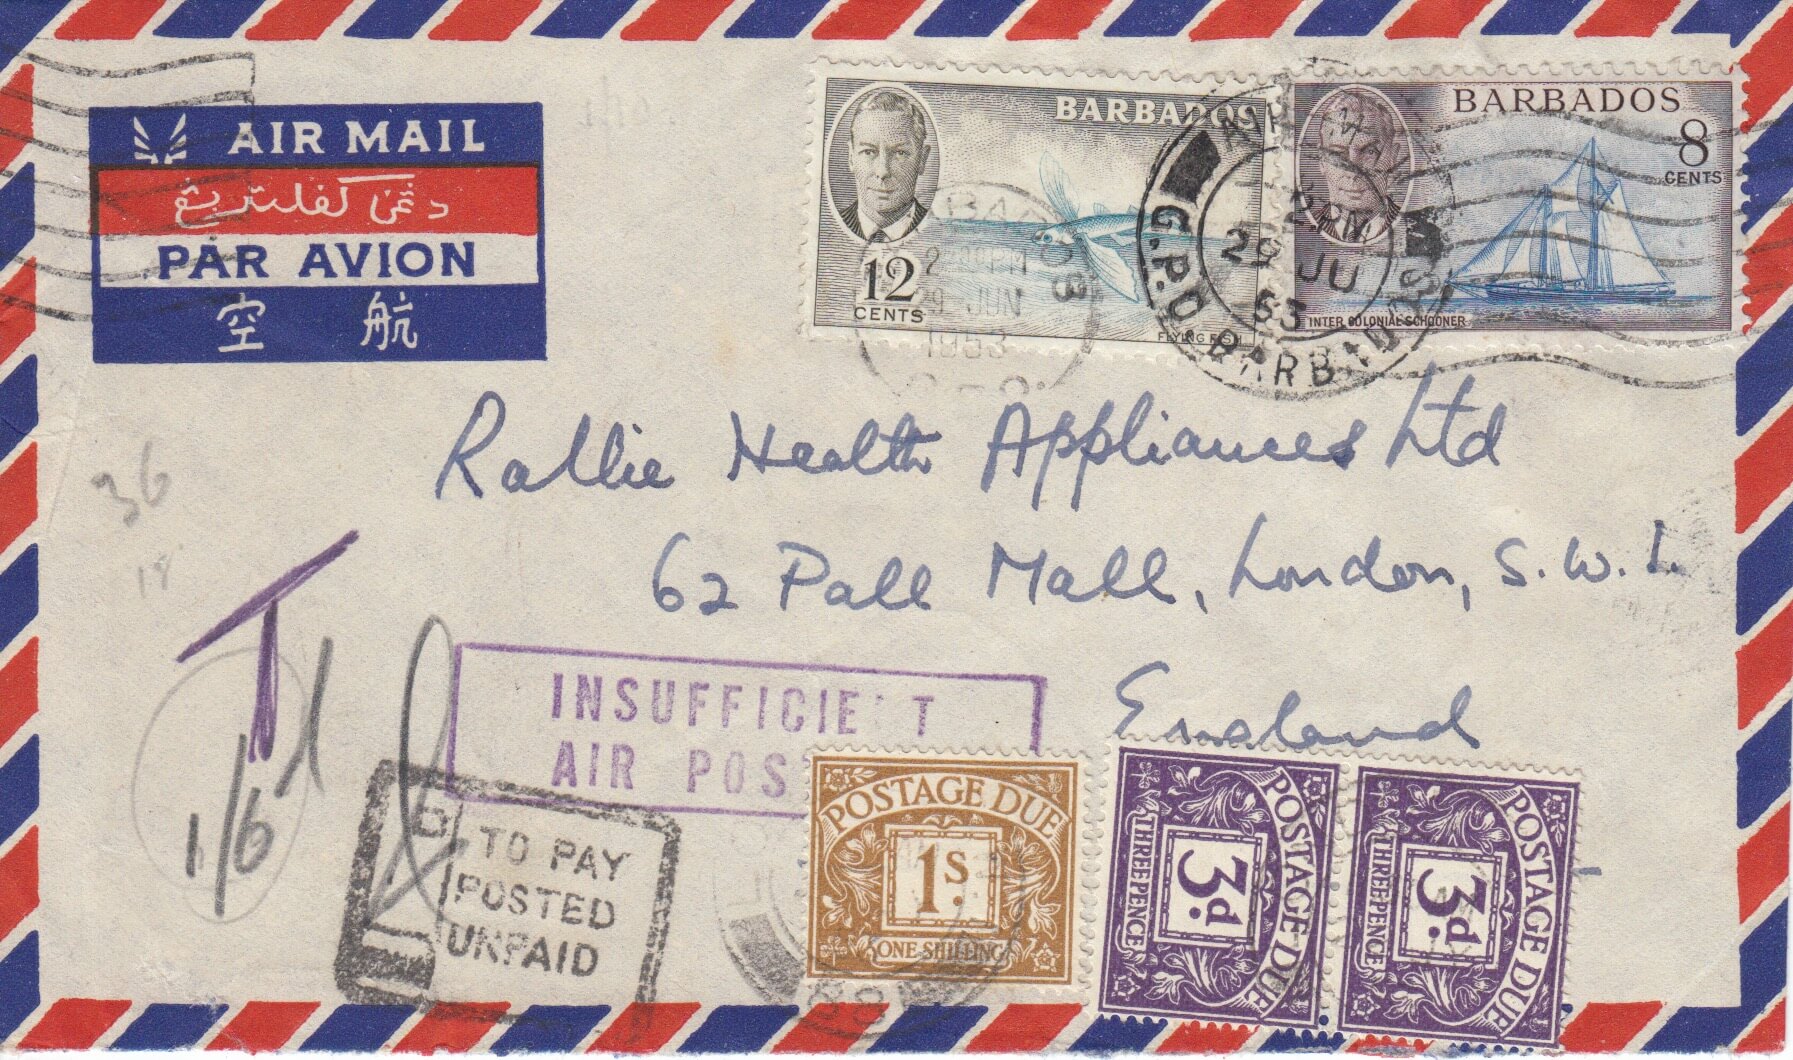 AIR MAIL
PAR AVION
空 航
BARBADOS
12
CENTS
FLYING FISH
BARBADOS
8
CENTS
INTER COLONIAL SCHOONER
2.00 PM
29 JUN
1953
AIR MAIL
2 PM
29 JU
53
G.P.O. BARBADOS
Rallie Health Appliances Ltd
62 Pall Mall, London, S.W.1.
England
36
18
T
1/6
INSUFFICIE T
AIR POS
TO PAY
POSTED
UNPAID
POSTAGE DUE
1s.
ONE SHILLING
POSTAGE DUE
3d.
THREEPENCE
POSTAGE DUE
3d.
THREEPENCE